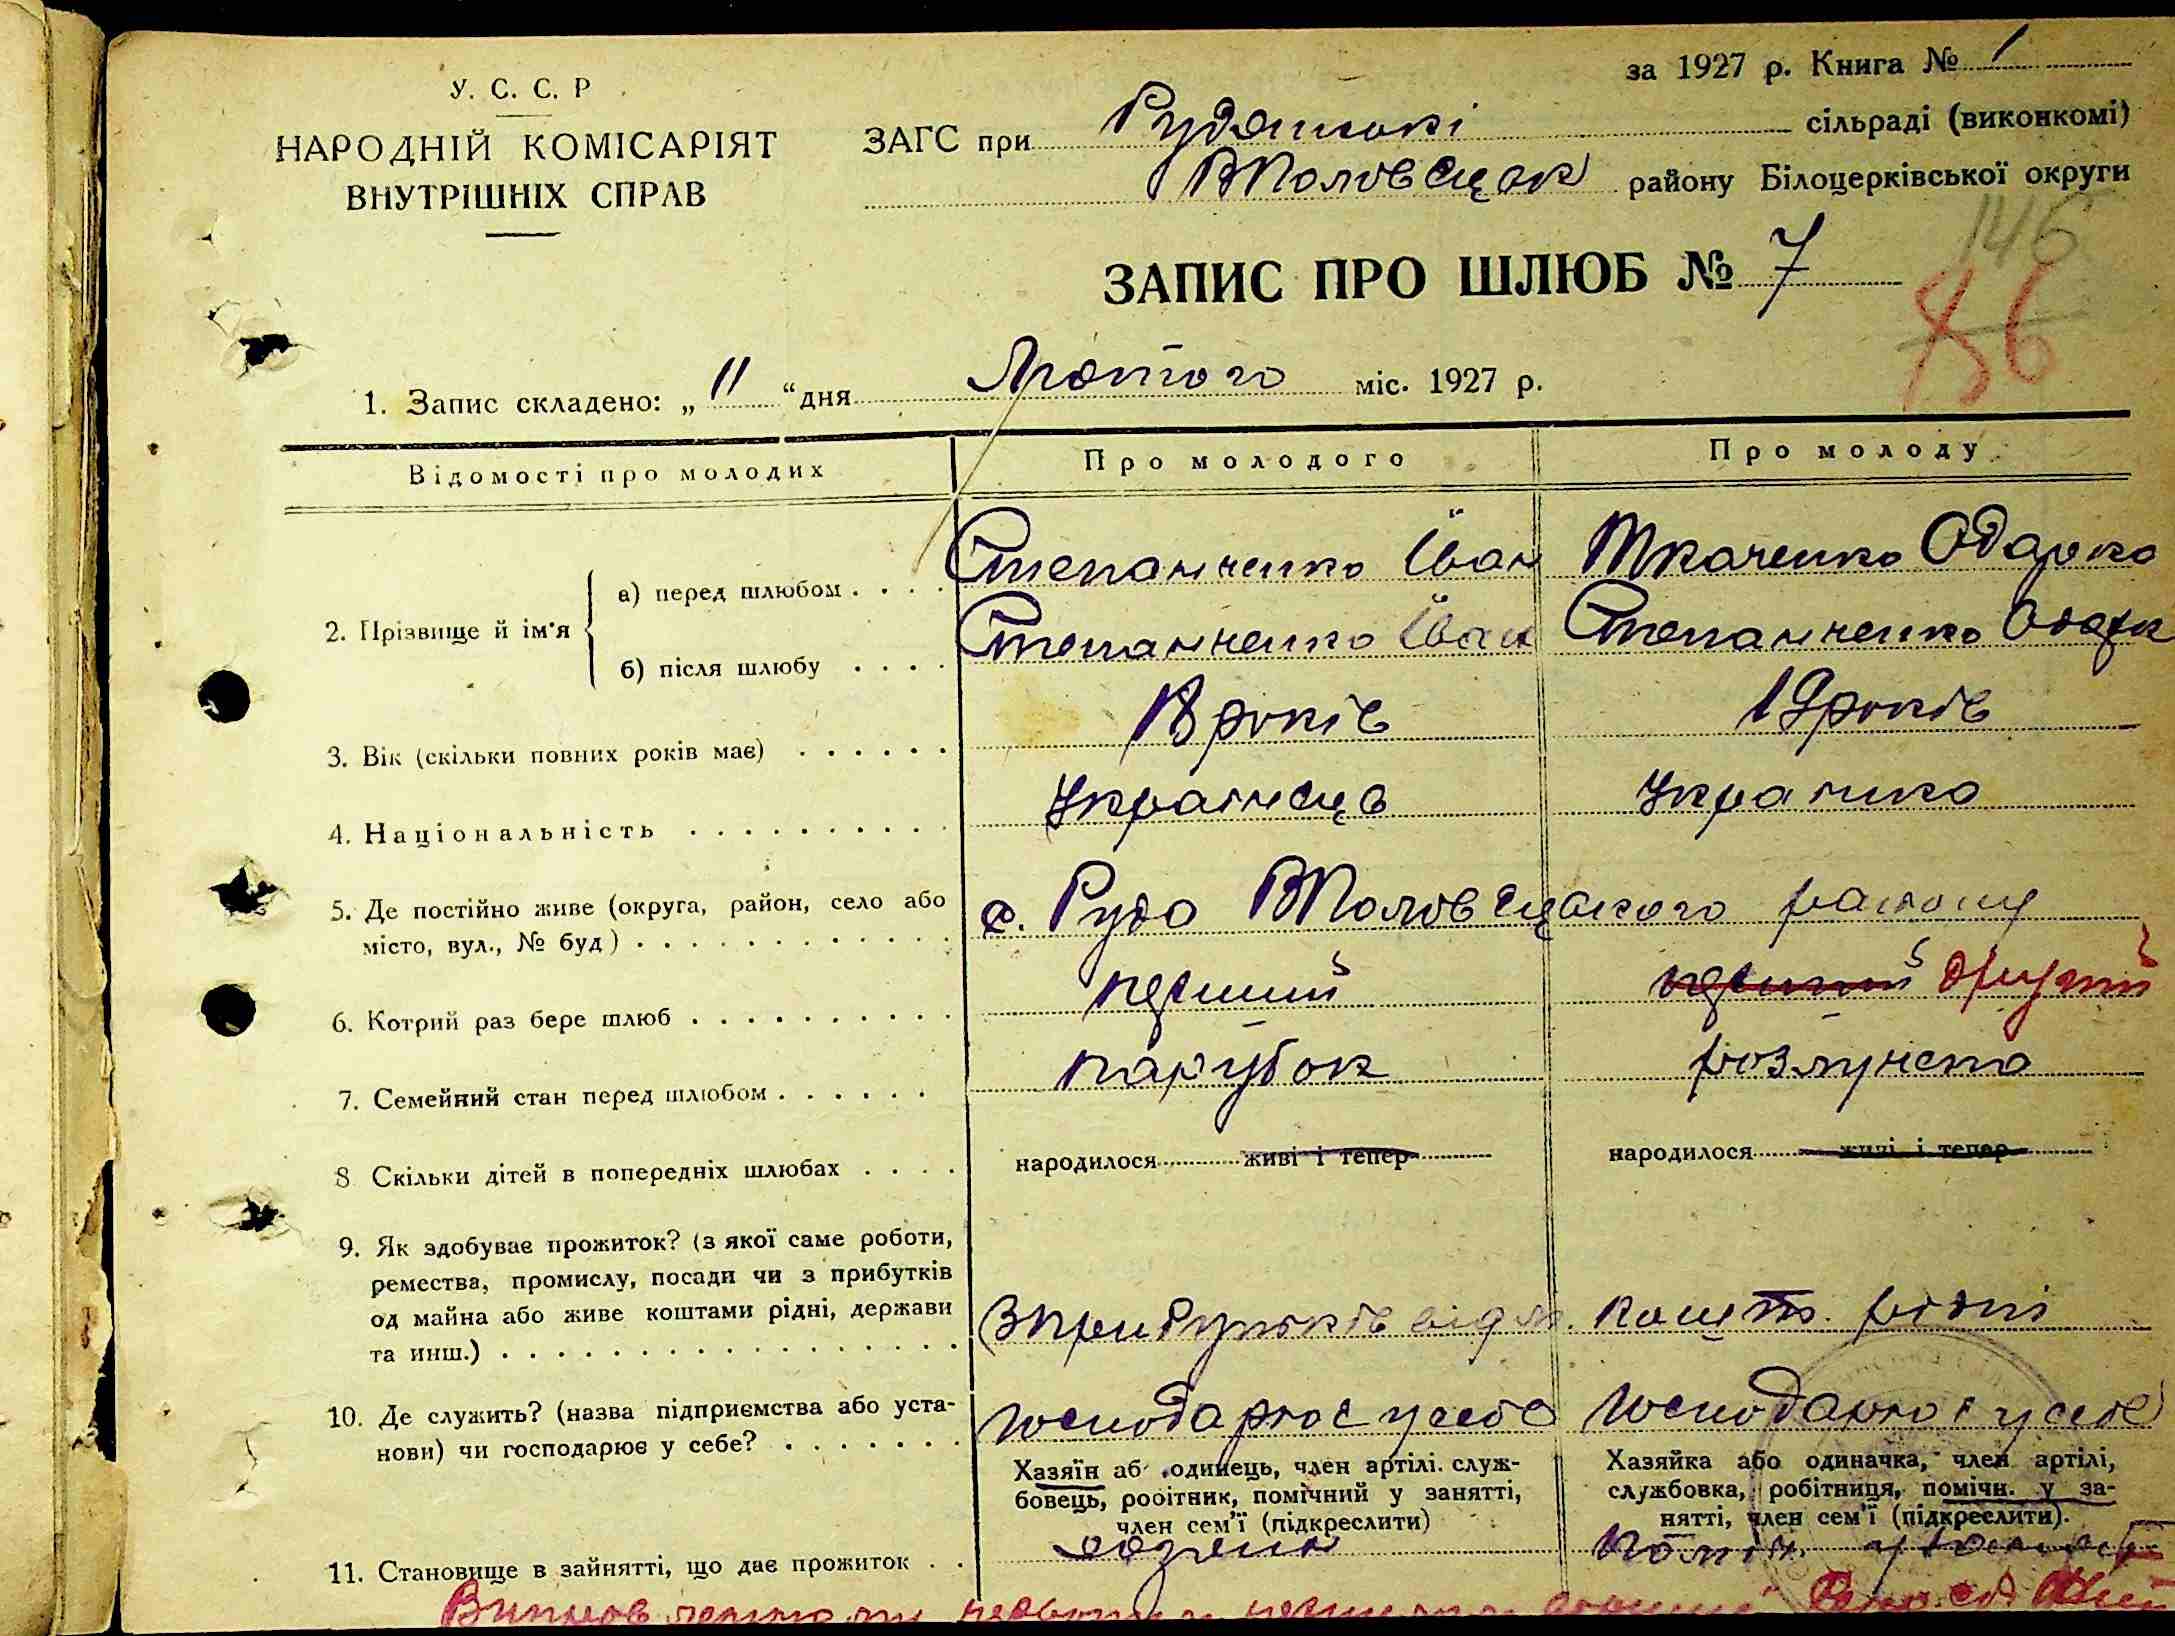 за 1927 р. Книга № 1
У. С. С. Р
НАРОДНІЙ КОМІСАРІЯТ
ВНУТРІШНІХ СПРАВ
ЗАГС при Рудянській сільраді (виконкомі)
ВПоловецьк району Білоцерківської округи
146
86
ЗАПИС ПРО ШЛЮБ № 7
1. Запис складено: „ 11 “ дня Лютого міс. 1927 р.
Відомості про молодих
Про молодого
Про молоду
2. Прізвище й ім'я
а) перед шлюбом . . . . Степанченко Іван Ткаченко Одарка
б) після шлюбу . . . . Степанченко Іван Степанченко Одарк
3. Вік (скільки повних років має) . . . . . . 18 років 19 років
4. Національність . . . . . . . . . . Українець Українка
5. Де постійно живе (округа, район, село або
місто, вул., № буд) . . . . . . . . . . . . с. Руда ВПоловецького району
6. Котрий раз бере шлюб . . . . . . . . . . перший перший другий
7. Семейний стан перед шлюбом . . . . . . парубок розлучена
8 Скільки дітей в попередніх шлюбах . . . . народилося живі і тепер народилося живі і тепер
9. Як здобуває прожиток? (з якої саме роботи,
ремества, промислу, посади чи з прибутків
од майна або живе коштами рідні, держави
та инш.) . . . . . . . . . . . . . . . . . З прибутків від м. кошт. рідні
10. Де служить? (назва підприємства або уста-
нови) чи господарює у себе? . . . . . . . господарює у себе господарює у себе
Хазяїн або одинець, член артілі. служ-
бовець, робітник, помічний у занятті,
член сем'ї (підкреслити)
Хазяйка або одиначка, член артілі,
службовка, робітниця, помічн. у за-
нятті, член сем'ї (підкреслити).
11. Становище в зайнятті, що дає прожиток . . хазяїн поміч. у